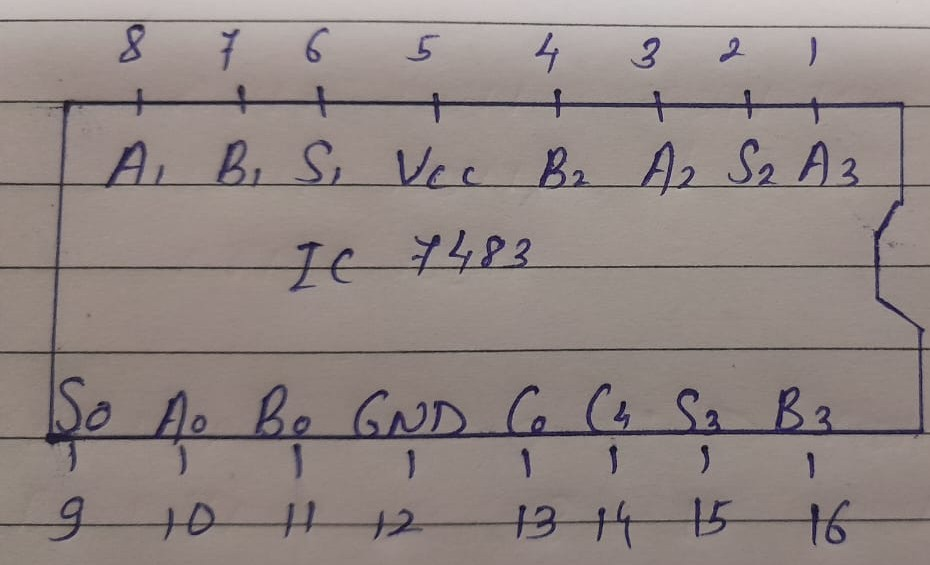 8 7 6 5 4 3 2 1
A1 B1 S1 Vcc B2 A2 S2 A3
IC 7483
S0 A0 B0 GND C0 C4 S3 B3
9 10 11 12 13 14 15 16